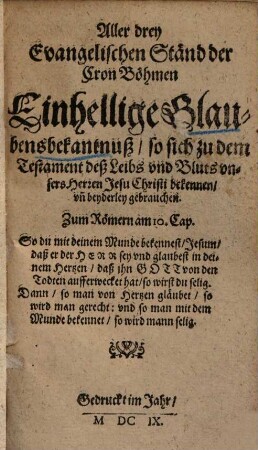 Aller drey
Evangelischen Ständ der
Cron Böhmen
Einhellige Glau-
bensbekantnüß / so sich zu dem
Testament deß Leibs vnd Bluts vn-
sers Herren Jesu Christi bekennen /
vñ beyderley gebrauchen.
Zum Römern am 10. Cap.
So du mit deinem Munde bekennest / Jesum /
daß er der HERR sey vnd glaubest in dei-
nem Hertzen / daß ihn GOTT von den
Todten aufferwecket hat / so wirst du selig.
Dann / so man von Hertzen gläubet / so
wird man gerecht: vnd so man mit dem
Munde bekennet / so wird mann selig.
Gedruckt im Jahr /
M DC IX.